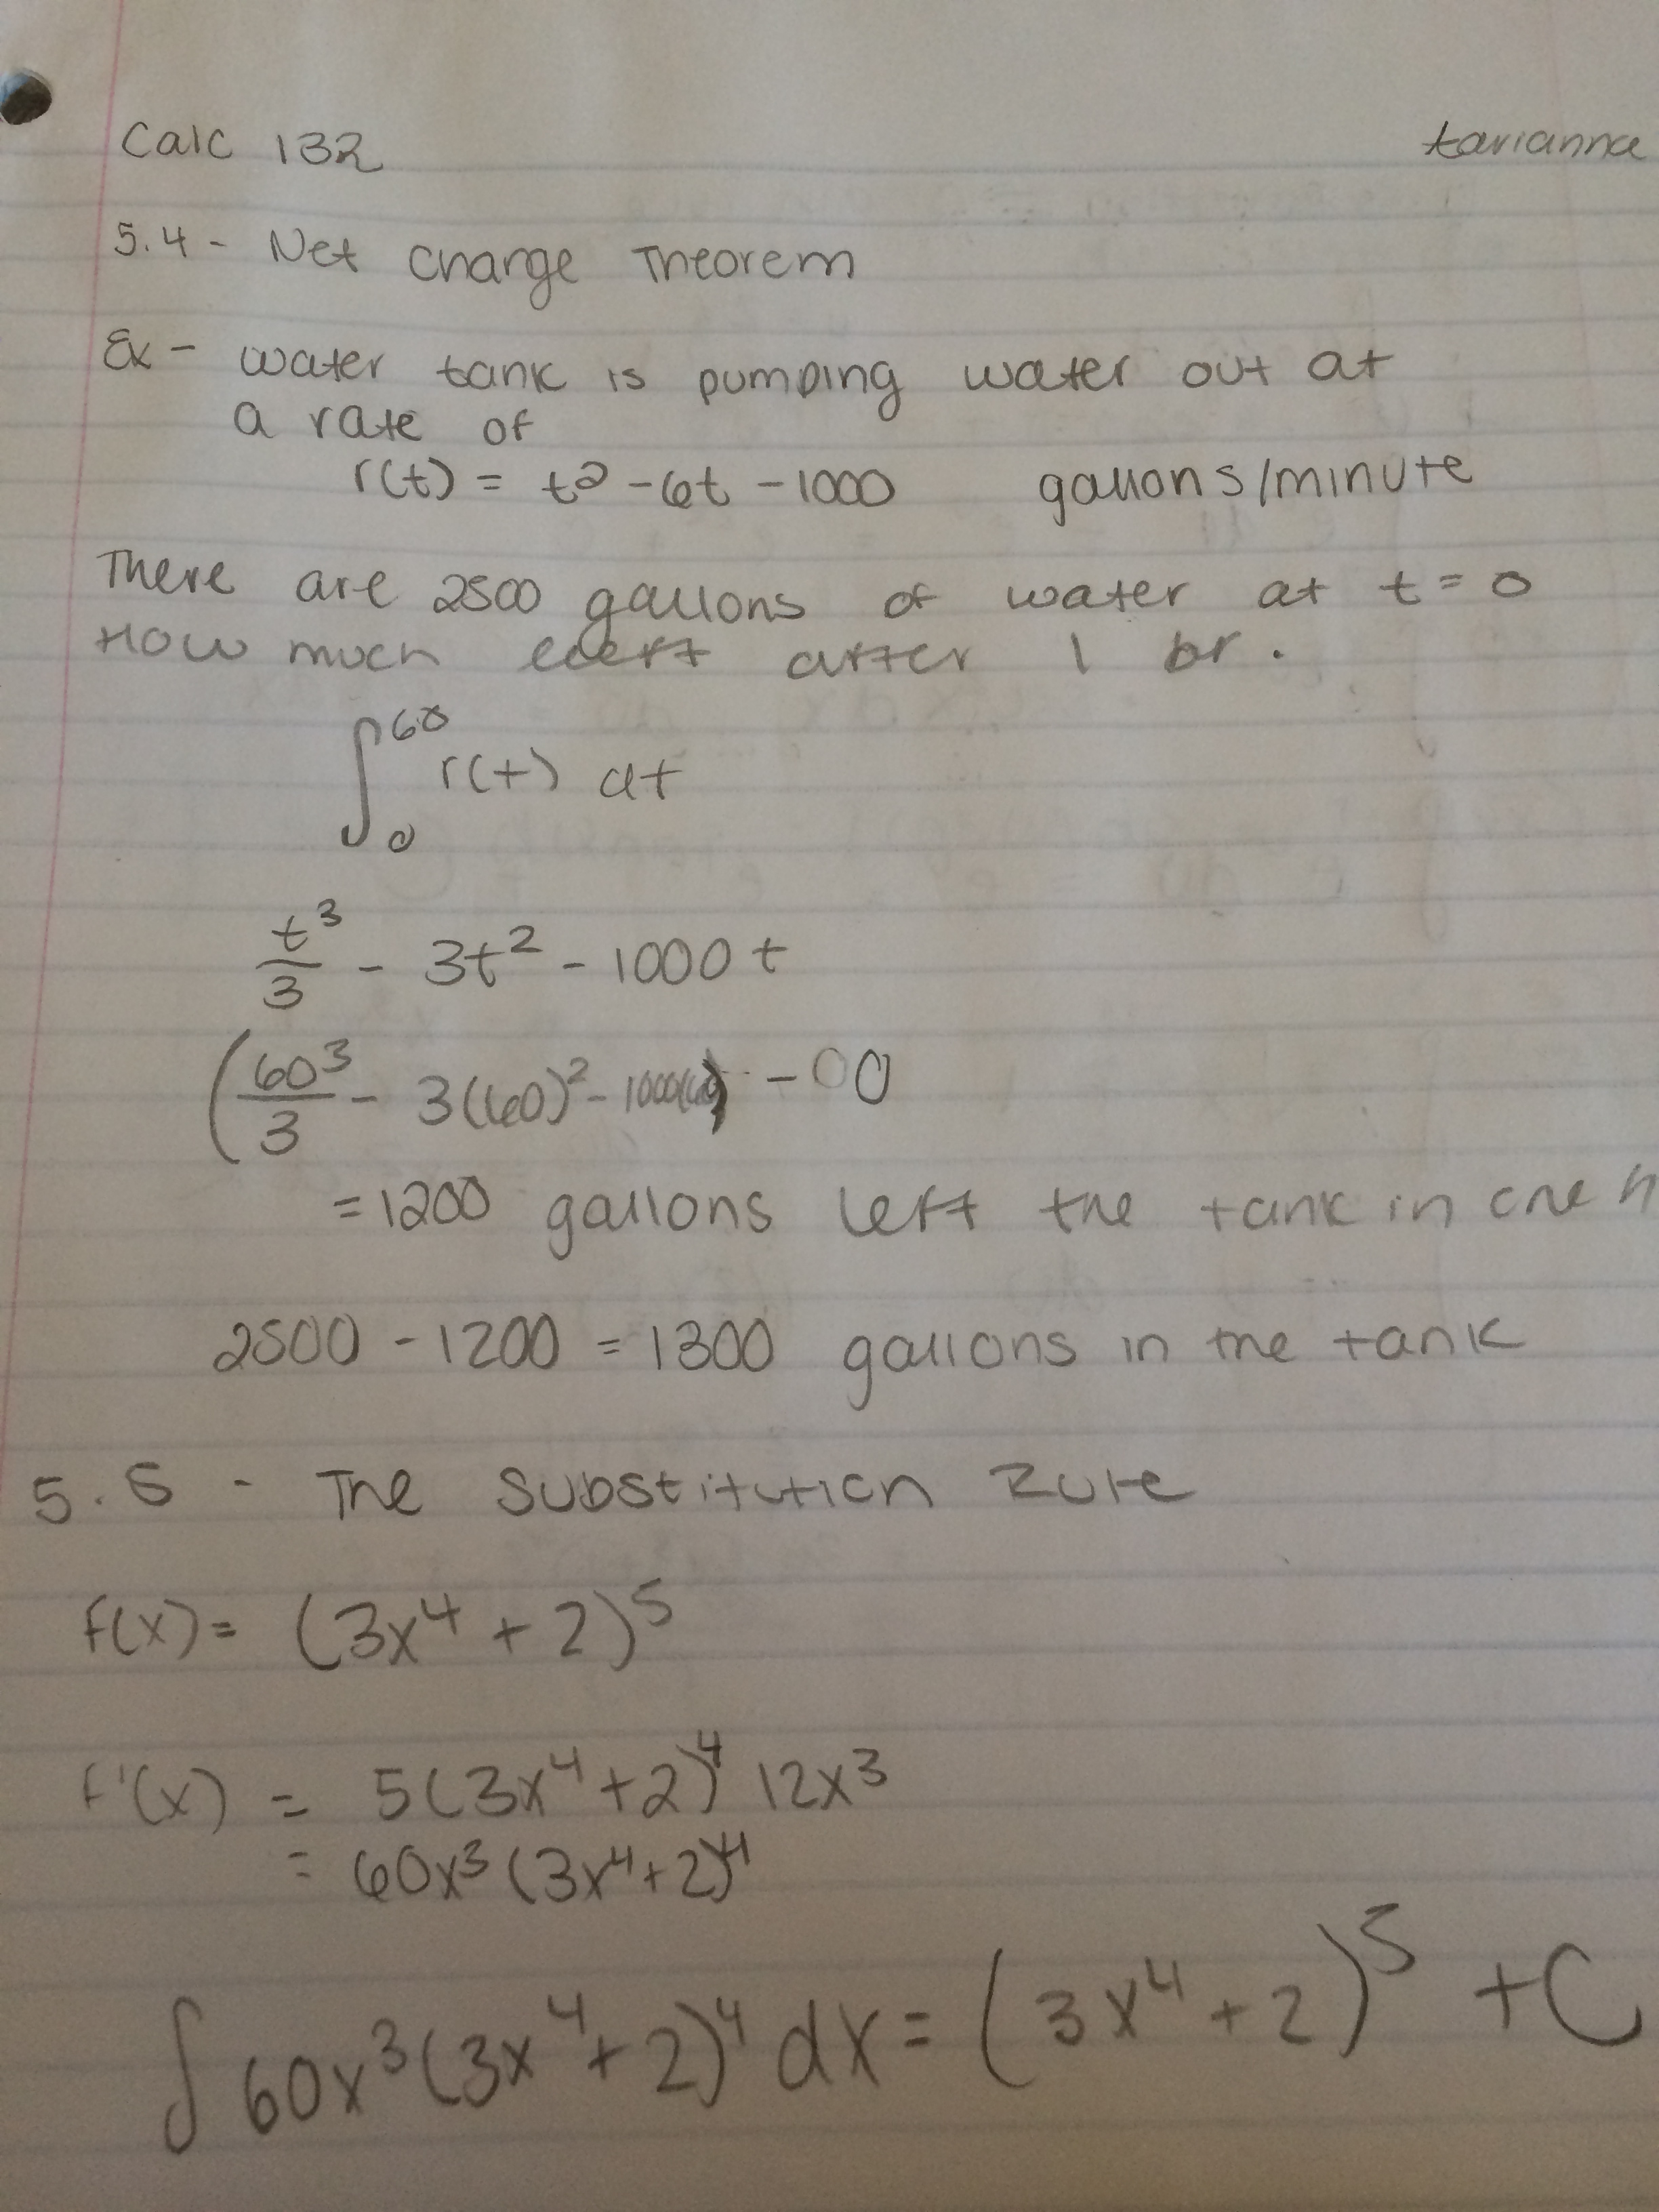 Calc 132 tarianna
5.4 - Net Change Theorem
Ex - water tank is pumping water out at
a rate of
r(t) = t² - 6t - 1000 gallons/minute
There are 2500 gallons of water at t = 0
How much left after 1 hr.
∫₀⁶⁰ r(t) dt
t³/3 - 3t² - 1000t
(60³/3 - 3(60)² - 1000(60)) - 0
= 1200 gallons left the tank in one h
2500 - 1200 = 1300 gallons in the tank
5.5 - The Substitution Rule
f(x) = (3x⁴ + 2)⁵
f'(x) = 5(3x⁴ + 2)⁴ 12x³
= 60x³(3x⁴ + 2)⁴
∫ 60x³(3x⁴ + 2)⁴ dx = (3x⁴ + 2)⁵ + C